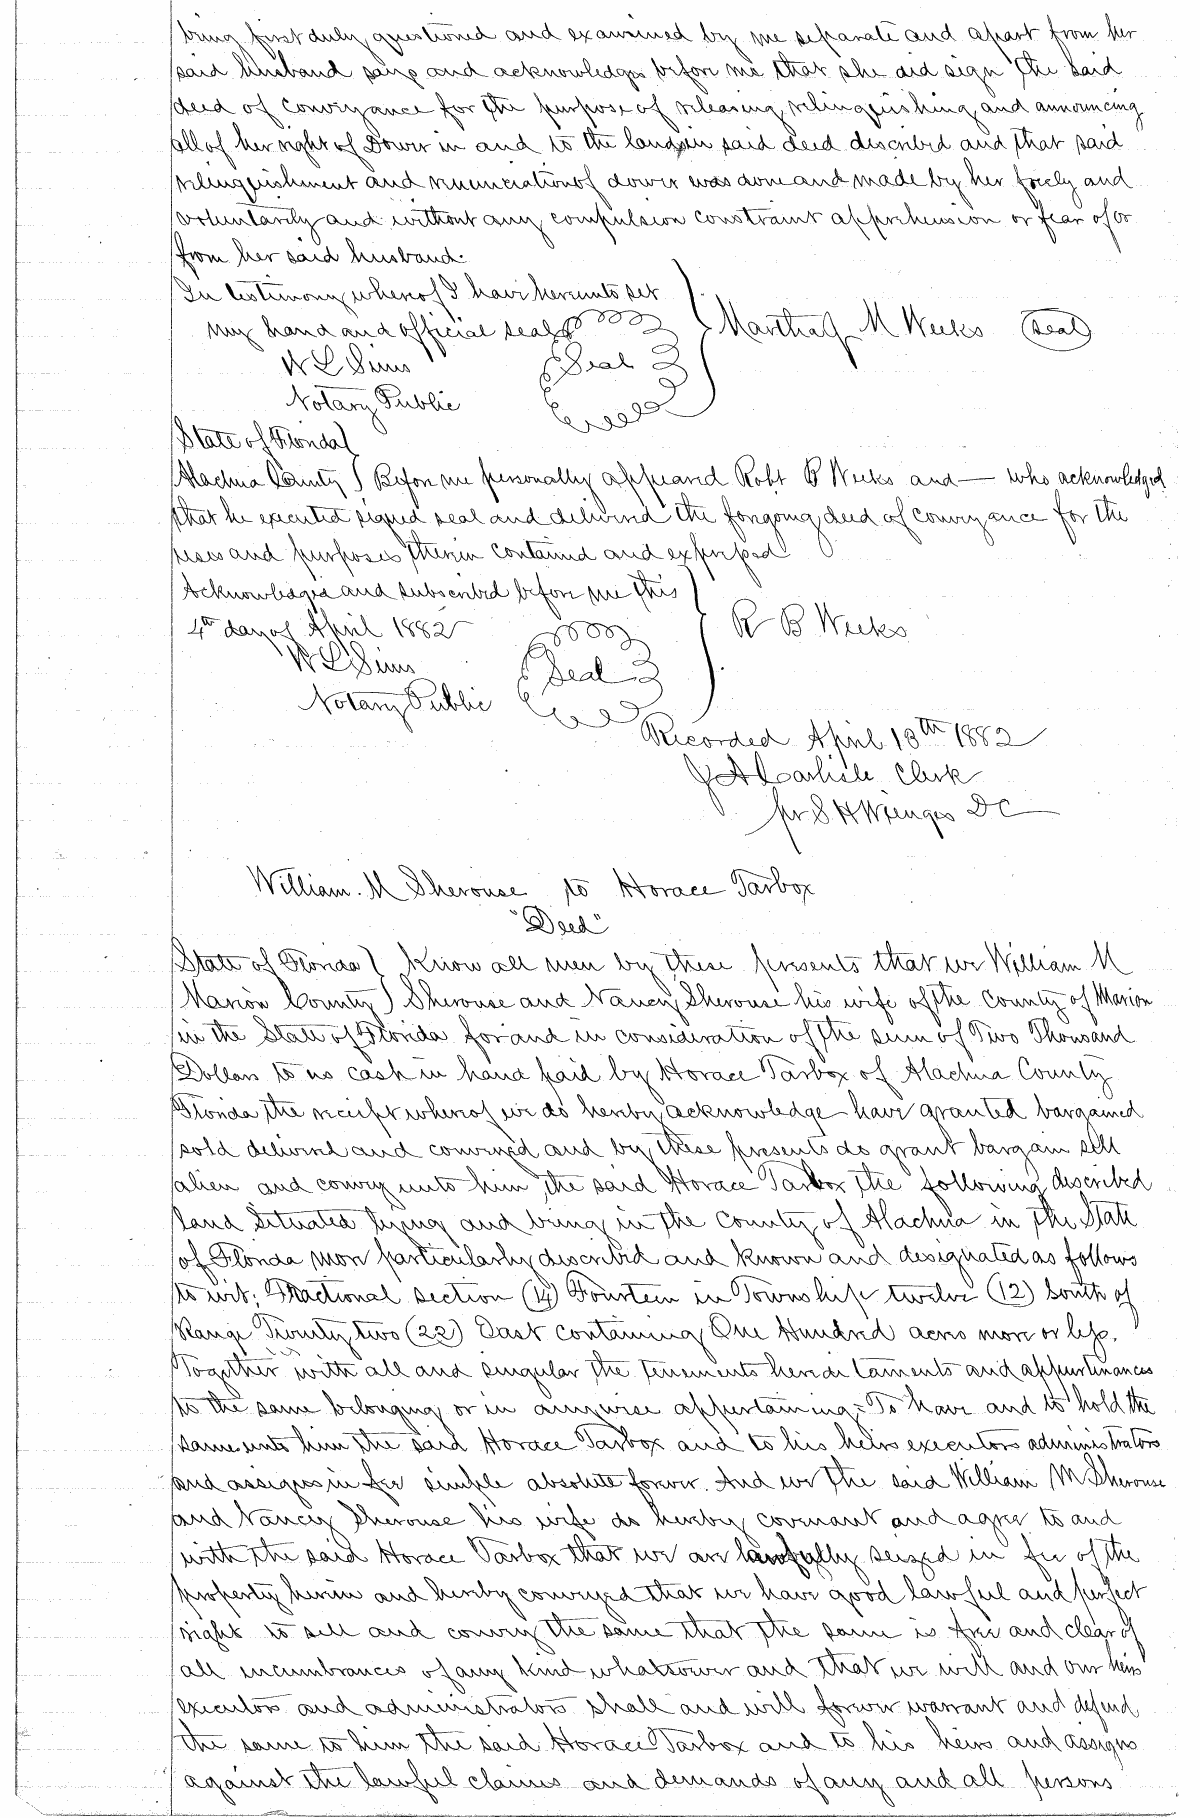 being first duly questioned and examined by me separate and apart from her
said husband says and acknowledges before me that she did sign the said
deed of conveyance for the purpose of releasing relinquishing and announcing
all of her right of Dower in and to the lands in said deed described and that said
relinquishment and renunciation of dower was done and made by her freely and
voluntarily and without any compulsion constraint apprehension or fear of or
from her said husband.
In testimony whereof I have hereunto set
my hand and official seal
Martha M Weeks (Seal)
W L Sims
Seal
Notary Public
State of Florida }
Alachua County } Before me personally appeared Robt B Weeks and — who acknowledged
that he executed signed seal and delivered the forgoing deed of conveyance for the
uses and purposes therein contained and expressed
Acknowledged and subscribed before me this
4th day of April 1882
R B Weeks
W L Sims
Seal
Notary Public
Recorded April 13th 1882
J A Carlisle Clerk
pr S H Wienges DC
William. M Sherouse to Horace Tarbox
"Deed"
State of Florida } Know all men by these presents that we William M
Marion County } Sherouse and Nancy Sherouse his wife of the County of Marion
in the State of Florida for and in consideration of the sum of Two Thousand
Dollars to us cash in hand paid by Horace Tarbox of Alachua County
Florida the receipt whereof we do hereby acknowledge have granted bargained
sold delivered and conveyed and by these presents do grant bargain sell
alien and convey unto him the said Horace Tarbox the following described
land Situated lying and being in the County of Alachua in the State
of Florida more particularly described and known and designated as follows
to wit; Fractional section (14) Fourteen in Township twelve (12) South of
Range Twenty two (22) East containing One Hundred acres more or less.
Together with all and singular the tenements heriditaments and appurtinances
to the same belonging or in anywise appertaining = To have and to hold the
same unto him the said Horace Tarbox and to his heirs executors administrators
and assigns in fee simple absolute forever. And we the said William M Sherouse
and Nancy Sherouse his wife do hereby covenant and agree to and
with the said Horace Tarbox that we are lawfully seized in fee of the
property herein and hereby conveyed that we have good lawful and perfect
right to sell and convey the same that the same is free and clear of
all incumbrances of any kind whatsoever and that we will and our heirs
executors and administrators shall and will forever warrant and defend
the same to him the said Horace Tarbox and to his heirs and assigns
against the lawful claims and demands of any and all persons